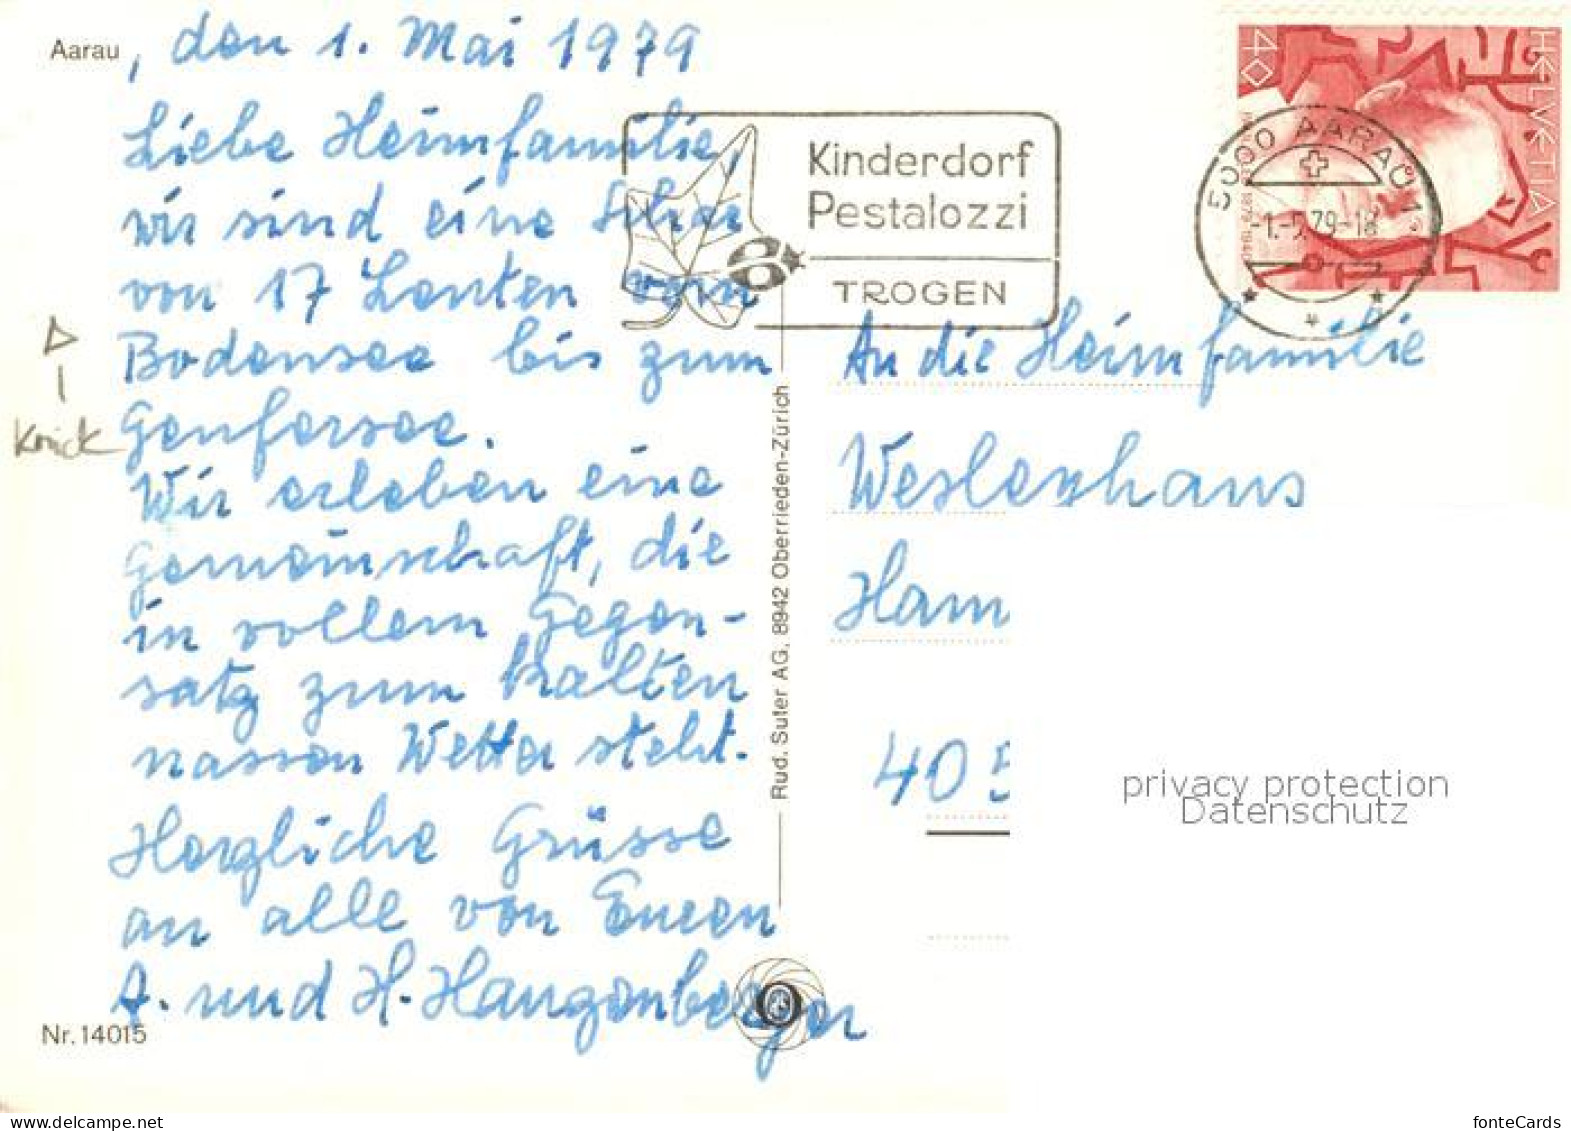 Aarau, den 1. Mai 1979
Liebe Heimfamilie,
wir sind eine Schar
von 17 Leuten vom
Bodensee bis zum
Genfersee.
Wir erleben eine
Gemeinschaft, die
in vollem Gegen-
satz zum kalten
nassen Wetter steht.
Herzliche Grüsse
an alle von Euren
A. und H. Hangenberger
Nr. 14015
Knick
Kinderdorf
Pestalozzi
TROGEN
Rud. Suter AG, 8942 Oberrieden-Zürich
HELVETIA
40
5000 AARAU 1
-1.-5.79-18
An die Heimfamilie
Wesleyhaus
Ham
405
privacy protection
Datenschutz
delcampe.net
fonteCards